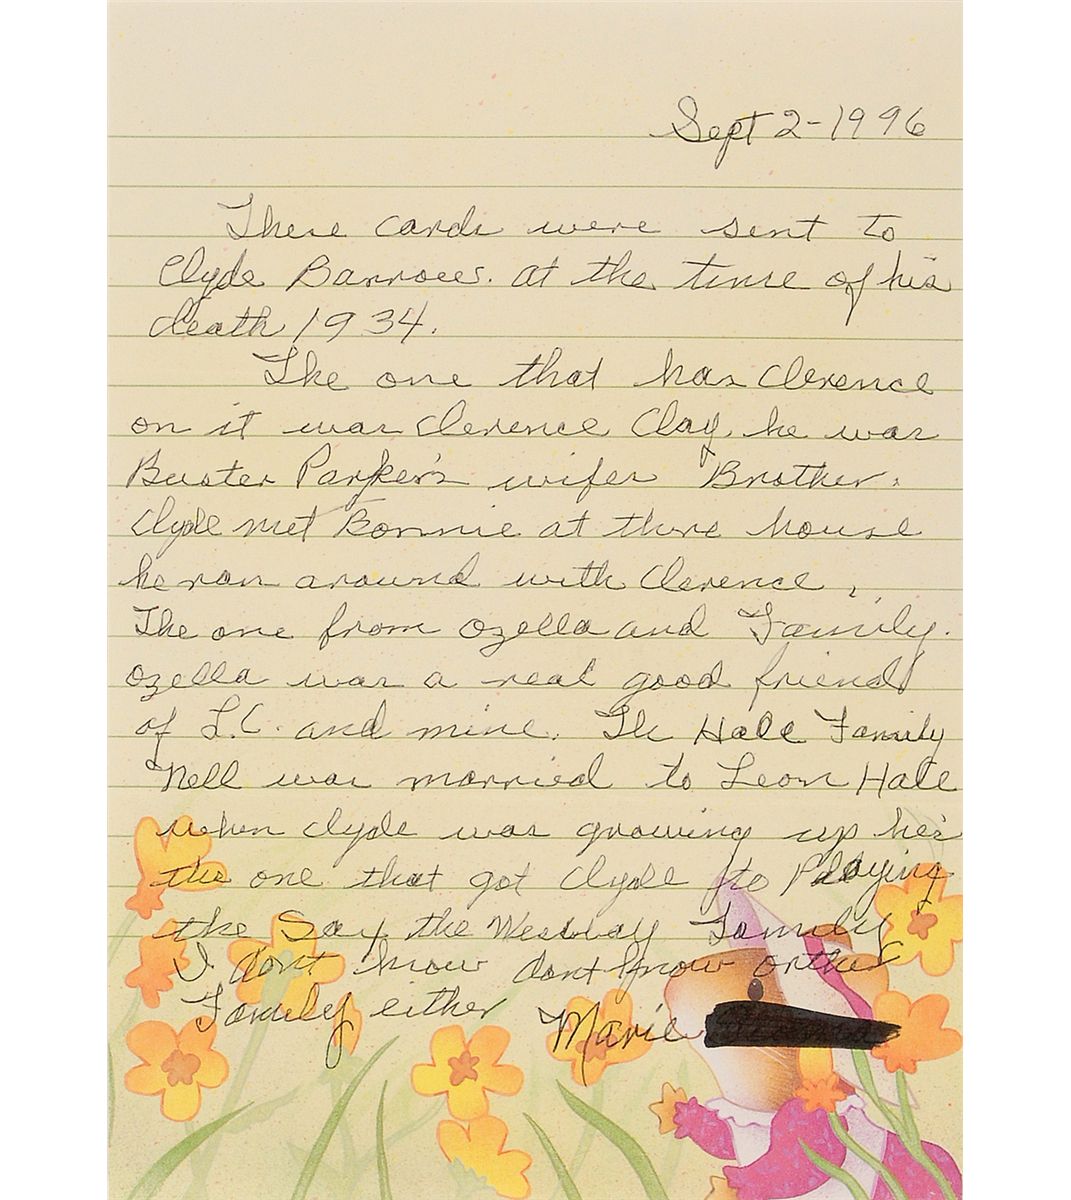 Sept 2-1996
These cards were sent to
Clyde Barrow. at the time of his
death 1934.
The one that has Clerence
on it was Clerence Clay, he was
Buster Parker's wifes Brother.
Clyde met Bonnie at there house
he ran around with Clerence.
The one from Ozella and Family.
Ozella was a real good friend
of L.C. and mine. The Hale Family
Nell was married to Leon Hale
when Clyde was growing up he's
the one that got Clyde to Playing
the Sax, the Westbay Family
I dont know dont know orther
Family either Marie